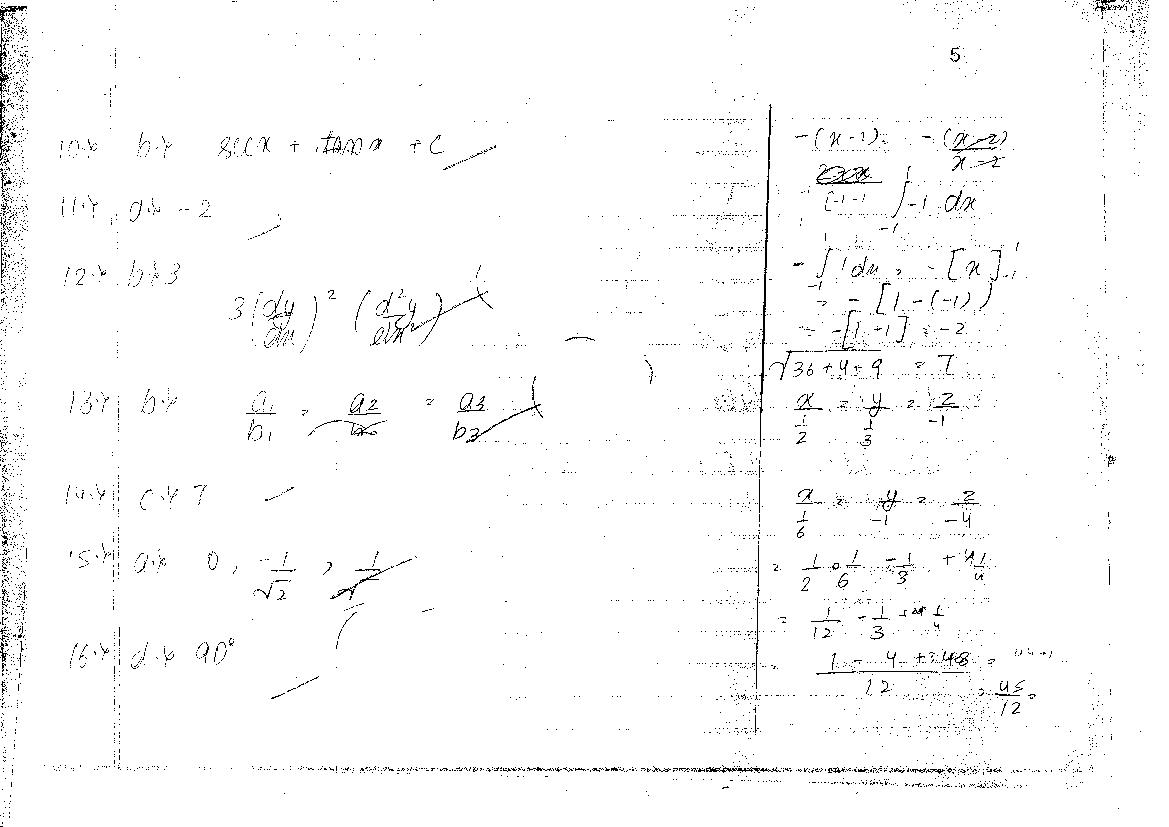 5
10. b. secx + tanx + C
11. a. -2
12. b. 3
3 (dy/dx)² (d²y/dx²)
13. b. a1/b1 = a2/b2 = a3/b3
14. c. 7
15. a. 0, -1/√2, 1/√
16. d. 90°
-(x-1) = -(x-2)/x-2
∫ -1 dx
-1
- ∫ 1 dx = -[x]
= -[1-(-1)]
= -[1+1] = -2
√36+4+9 = 7
x/1/2 = y/1/3 = z/-1
x/1/6 = y/-1 = z/-4
= 1/2 · 1/6 - 1/3 +
= 1/12 - 1/3
= 1 - 4 + 48 / 12 =
= 45/12 =